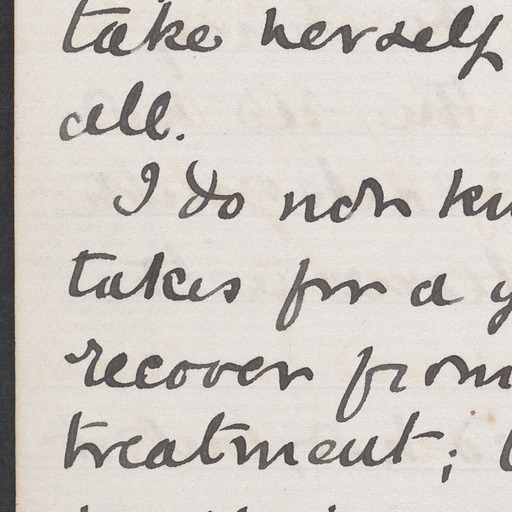 take herself
all.
I do not
takes for a
recover from
treatment;